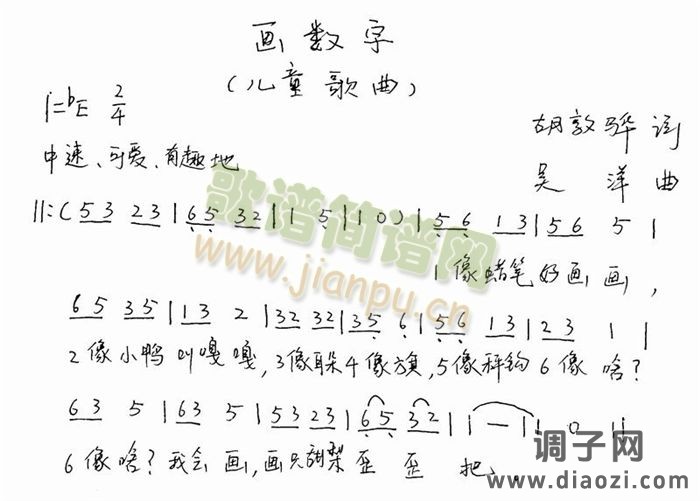 画数字
(儿童歌曲)
1=bE 2/4
胡敦骅 词
中速、可爱、有趣地
吴洋 曲
歌谱简谱网
www.jianpu.cn
||:(53 23|65 32|1 5|1 0)|56 13|56 5|
1像蜡笔好画画,
65 35|13 2|32 32|35 6|56 13|23 1|
2像小鸭叫嘎嘎,3像耳朵4像旗,5像秤钩6像啥?
63 5|63 5|53 23|65 32|1-|1 0||
6像啥?我会画,画只甜梨歪歪把。
调子网
www.diaozi.com